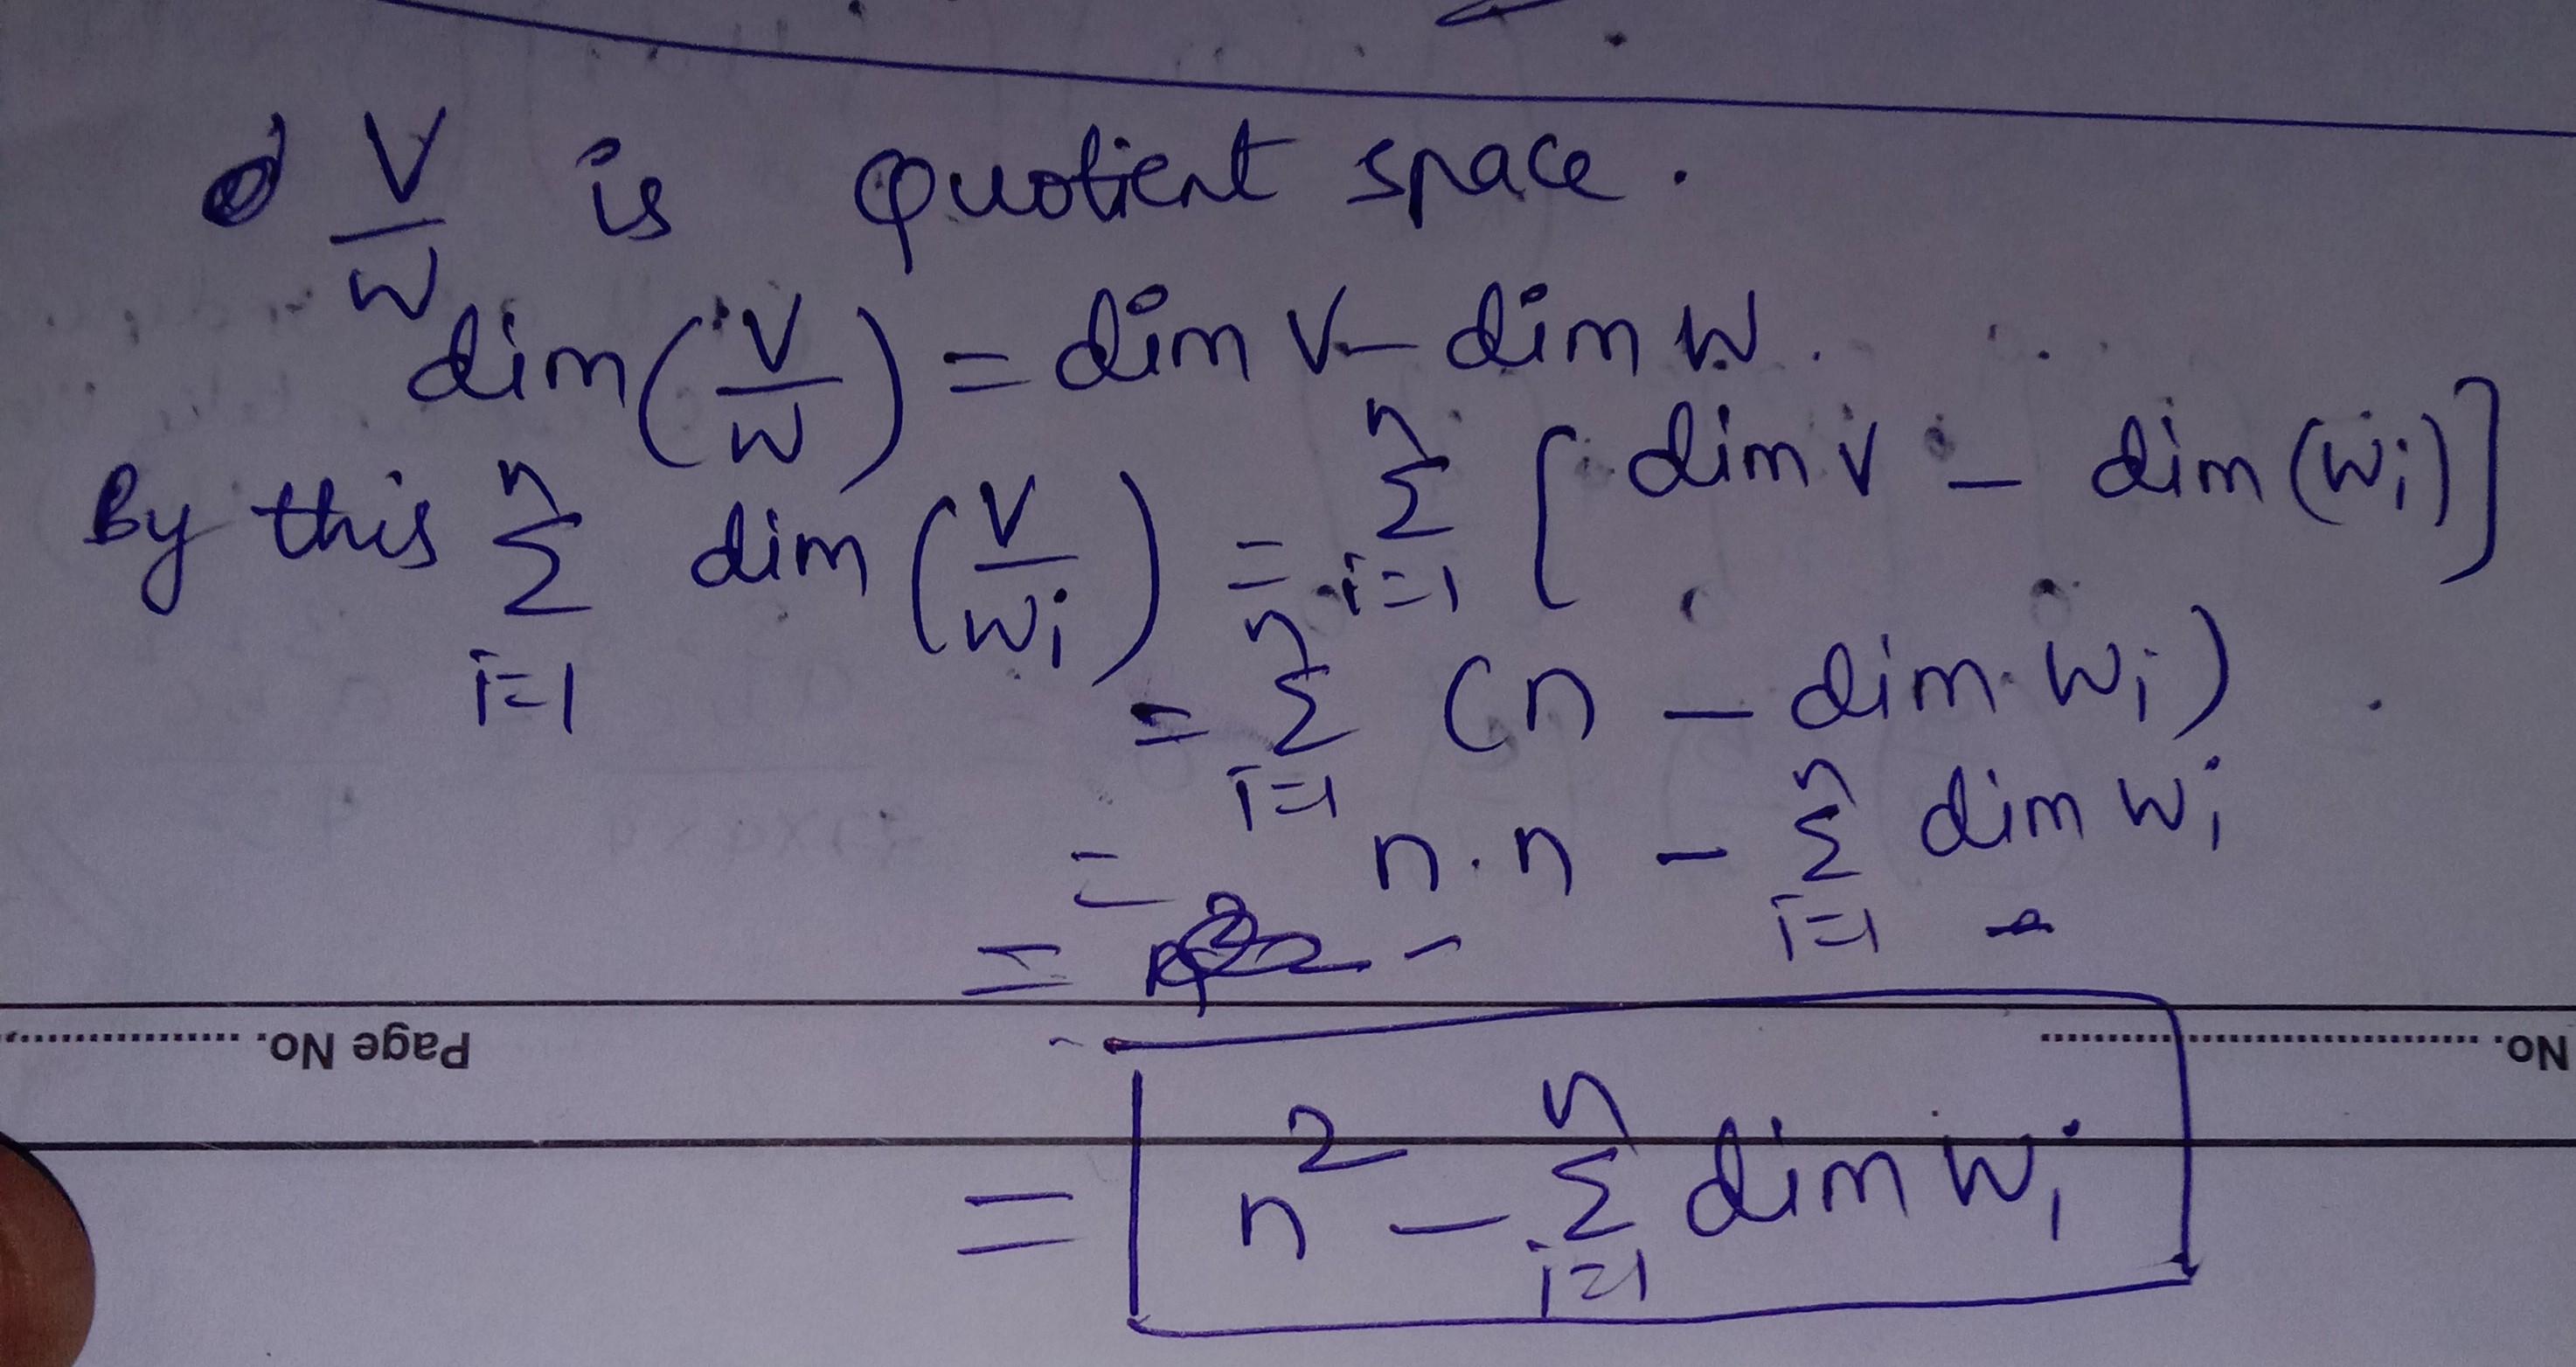 V/W is Quotient space.
dim(V/W) = dim V - dim W.
By this n∑i=1 dim(V/Wi) = n∑i=1 [dim V - dim(Wi)]
= n∑i=1 (n - dim Wi)
= n.n - n∑i=1 dim Wi
= -
Page No. ............ No. ............
= n² - n∑i=1 dim Wi